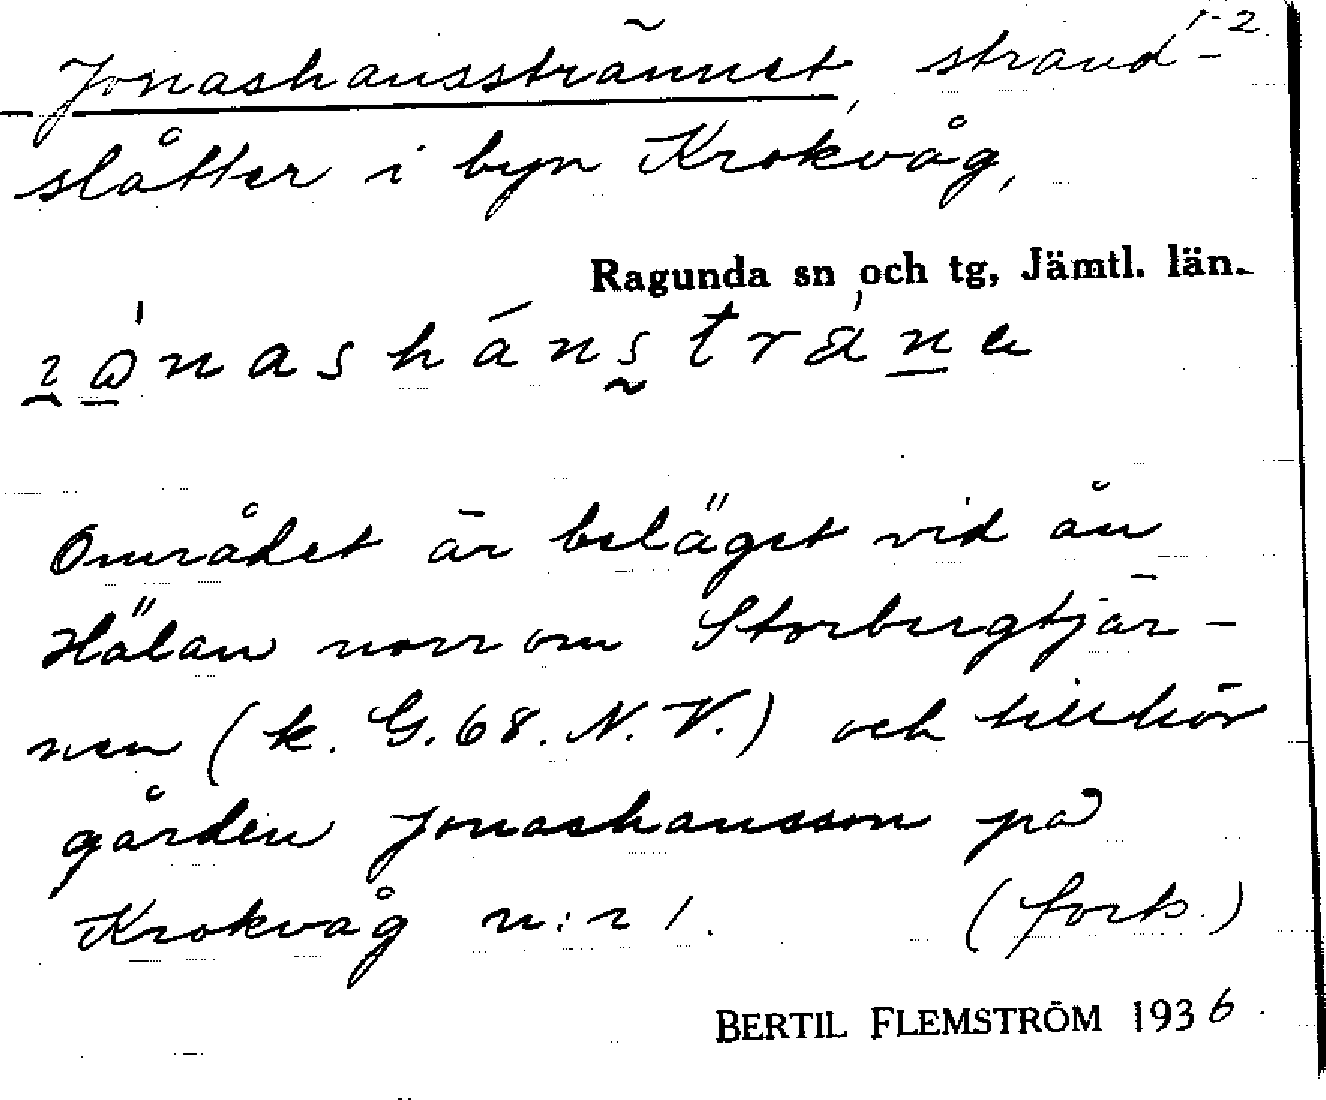 1-2.
Jonashansstrännet, strand-
slåtter i byn Krokvåg,
Ragunda sn och tg, Jämtl. län.
Området är beläget vid ån
Hälan norr om Storbergtjär-
nen (k. G. 68. N. V.) och tillhör
gården Jonashansson på
Krokvåg n:r 1. (forts.)
BERTIL FLEMSTRÖM 1936